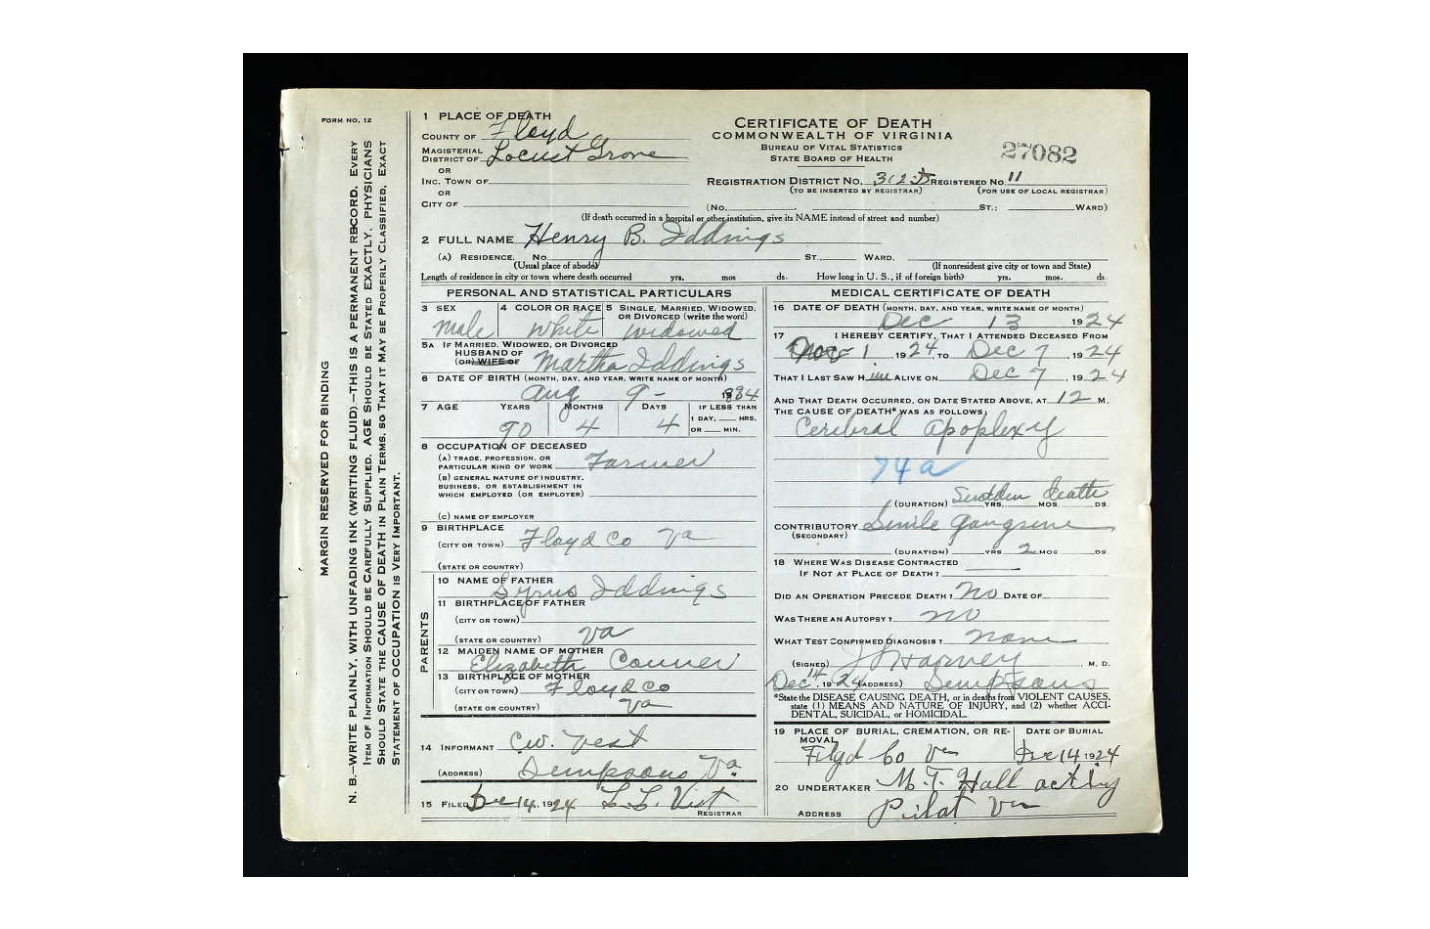 FORM NO. 12
MARGIN RESERVED FOR BINDING
N. B.—WRITE PLAINLY, WITH UNFADING INK (WRITING FLUID).—THIS IS A PERMANENT RECORD. EVERY
ITEM OF INFORMATION SHOULD BE CAREFULLY SUPPLIED. AGE SHOULD BE STATED EXACTLY. PHYSICIANS
SHOULD STATE THE CAUSE OF DEATH IN PLAIN TERMS, SO THAT IT MAY BE PROPERLY CLASSIFIED. EXACT
STATEMENT OF OCCUPATION IS VERY IMPORTANT.
1 PLACE OF DEATH
COUNTY OF Floyd
MAGISTERIAL
DISTRICT OF Locust Grove
OR
INC. TOWN OF
OR
CITY OF
CERTIFICATE OF DEATH
COMMONWEALTH OF VIRGINIA
BUREAU OF VITAL STATISTICS
STATE BOARD OF HEALTH
27082
REGISTRATION DISTRICT NO. REGISTERED NO. 11
(TO BE INSERTED BY REGISTRAR) (FOR USE OF LOCAL REGISTRAR)
(NO. ST.; WARD)
(If death occurred in a hospital or other institution, give its NAME instead of street and number)
2 FULL NAME Henry B. Iddings
(A) RESIDENCE. NO. ST. WARD.
(Usual place of abode) (If nonresident give city or town and State)
Length of residence in city or town where death occurred yrs. mos ds. How long in U. S., if of foreign birth? yrs. mos. ds.
PERSONAL AND STATISTICAL PARTICULARS
3 SEX 4 COLOR OR RACE 5 SINGLE, MARRIED, WIDOWED, OR DIVORCED (write the word)
Male White Widowed
5A IF MARRIED, WIDOWED, OR DIVORCED
HUSBAND OF
(OR) WIFE OF Martha Iddings
6 DATE OF BIRTH (MONTH, DAY, AND YEAR, WRITE NAME OF MONTH)
Aug 9- 1834
7 AGE YEARS MONTHS DAYS IF LESS THAN
1 DAY, HRS.
OR MIN.
90 4 4
8 OCCUPATION OF DECEASED
(A) TRADE, PROFESSION, OR
PARTICULAR KIND OF WORK Farmer
(B) GENERAL NATURE OF INDUSTRY,
BUSINESS, OR ESTABLISHMENT IN
WHICH EMPLOYED (OR EMPLOYER)
(C) NAME OF EMPLOYER
9 BIRTHPLACE
(CITY OR TOWN) Floyd Co Va
(STATE OR COUNTRY)
PARENTS
10 NAME OF FATHER
Syrus Iddings
11 BIRTHPLACE OF FATHER
(CITY OR TOWN)
(STATE OR COUNTRY) Va
12 MAIDEN NAME OF MOTHER
Elizabeth Conner
13 BIRTHPLACE OF MOTHER
(CITY OR TOWN) Floyd Co
(STATE OR COUNTRY) Va
14 INFORMANT C.W. Vest
(ADDRESS) Simpsons Va.
15 FILED Dec 14, 1924 L. L. Vist
REGISTRAR
MEDICAL CERTIFICATE OF DEATH
16 DATE OF DEATH (MONTH, DAY, AND YEAR, WRITE NAME OF MONTH)
Dec 13 1924
17 I HEREBY CERTIFY, THAT I ATTENDED DECEASED FROM
1, 1924 TO Dec 7, 1924
THAT I LAST SAW H im ALIVE ON Dec 7, 1924
AND THAT DEATH OCCURRED, ON DATE STATED ABOVE, AT 12 M.
THE CAUSE OF DEATH* WAS AS FOLLOWS:
Cerebral apoplexy
74a
(DURATION) Sudden death YRS. MOS DS.
CONTRIBUTORY Senile Gangrene
(SECONDARY)
(DURATION) YRS 2 MOS DS
18 WHERE WAS DISEASE CONTRACTED
IF NOT AT PLACE OF DEATH?
DID AN OPERATION PRECEDE DEATH? No DATE OF
WAS THERE AN AUTOPSY? no
WHAT TEST CONFIRMED DIAGNOSIS? None
(SIGNED) Harvey, M. D.
Dec 14, 1924 (ADDRESS) Simpsons
*State the DISEASE CAUSING DEATH, or in deaths from VIOLENT CAUSES,
state (1) MEANS AND NATURE OF INJURY, and (2) whether ACCI-
DENTAL, SUICIDAL, or HOMICIDAL.
19 PLACE OF BURIAL, CREMATION, OR RE-
MOVAL DATE OF BURIAL
Floyd Co Va Dec 14 1924
20 UNDERTAKER M. T. Hall
ADDRESS Pilot Va